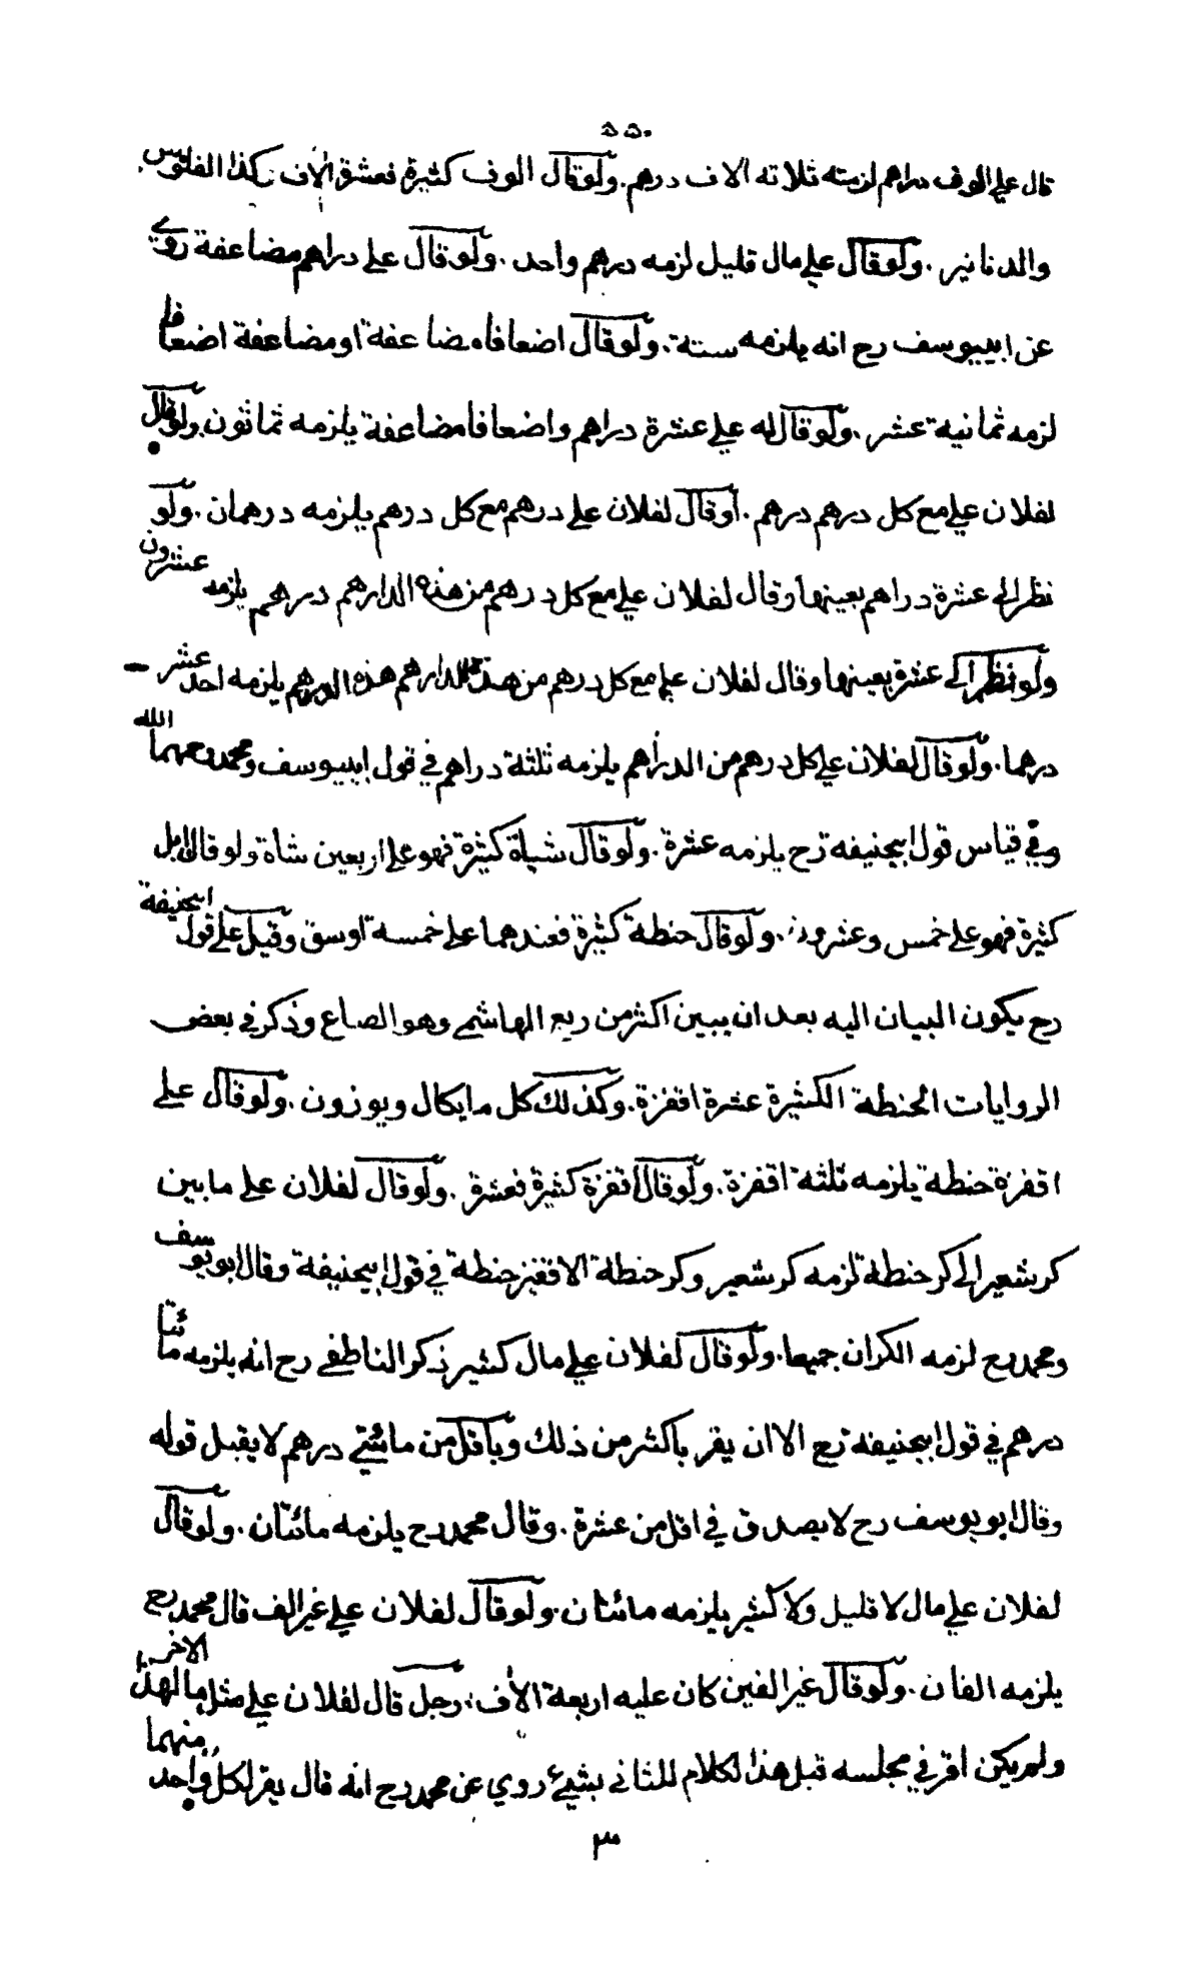 ٥٥٠
قال علي الوف دراهم لزمته ثلاثه الاف درهم . ولو قال الوف كثيرة فعشرة الاف وكذا الفلوس
والدنانير . ولو قال علي مال قليل لزمه درهم واحد . ولو قال علي دراهم مضاعفة روي
عن ابييوسف رح انه يلزمه ستة . ولو قال اضعافا مضاعفة او مضاعفة اضعافا
لزمه ثمانية عشر . ولو قال له علي عشرة دراهم واضعافا مضاعفة يلزمه ثمانون . ولو قال
لفلان علي مع كل درهم درهم . او قال لفلان علي درهم مع كل درهم يلزمه درهمان . ولو
نظر الي عشرة دراهم بعينها وقال لفلان علي مع كل درهم من هذه الدارهم درهم يلزمه عشرون
ولو نظر الي عشرة بعينها وقال لفلان علي مع كل درهم من هذه الدارهم هذه الدرهم يلزمه احد عشر
درهما . ولو قال لفلان علي كل درهم من الدراهم يلزمه ثلثة دراهم في قول ابييوسف ومحمد رحمهما الله
وفي قياس قول ابيحنيفه رح يلزمه عشرة . ولو قال شياة كثيرة فهو علي اربعين شاة ولو قال ابل
كثيرة فهو علي خمس وعشرون . ولو قال حنطة كثيرة فعندهما علي خمسة اوسق وقيل علي قول ابيحنيفة
رح يكون البيان اليه بعد ان يبين اكثر من ربع الهاشمي وهو الصاع وذكر في بعض
الروايات الحنطة الكثيرة عشرة اقفزة . وكذلك كل ما يكال ويوزون . ولو قال علي
اقفزة حنطة يلزمه ثلثة اقفزة . ولو قال اقفزة كثيرة فعشرة . ولو قال لفلان علي ما بين
كر شعير الي كر حنطة لزمه كر شعير وكر حنطة الا قفيز حنطة في قول ابيحنيفة وقال ابو يوسف
ومحمد رح لزمه الكران جميعا . ولو قال لفلان علي مال كثير ذكر الناطفي رح انه يلزمه مائتا
درهم في قول ابيحنيفه رح الا ان يقر باكثر من ذلك وباقل من مائتي درهم لا يقبل قوله
وقال ابو يوسف رح لا يصدق في اقل من عشرة . وقال محمد رح يلزمه مائتان . ولو قال
لفلان علي مال لا قليل ولا كثير يلزمه مائتان . ولو قال لفلان علي غير الف قال محمد رح
يلزمه الفان . ولو قال غير الفين كان عليه اربعة الاف . رجل قال لفلان علي مثل ما لهذا الاخر
ولم يكن اقر في مجلسه قبل هذا لكلام للثاني بشيئ روي عن محمد رح انه قال يقر لكل واحد منهما
٣